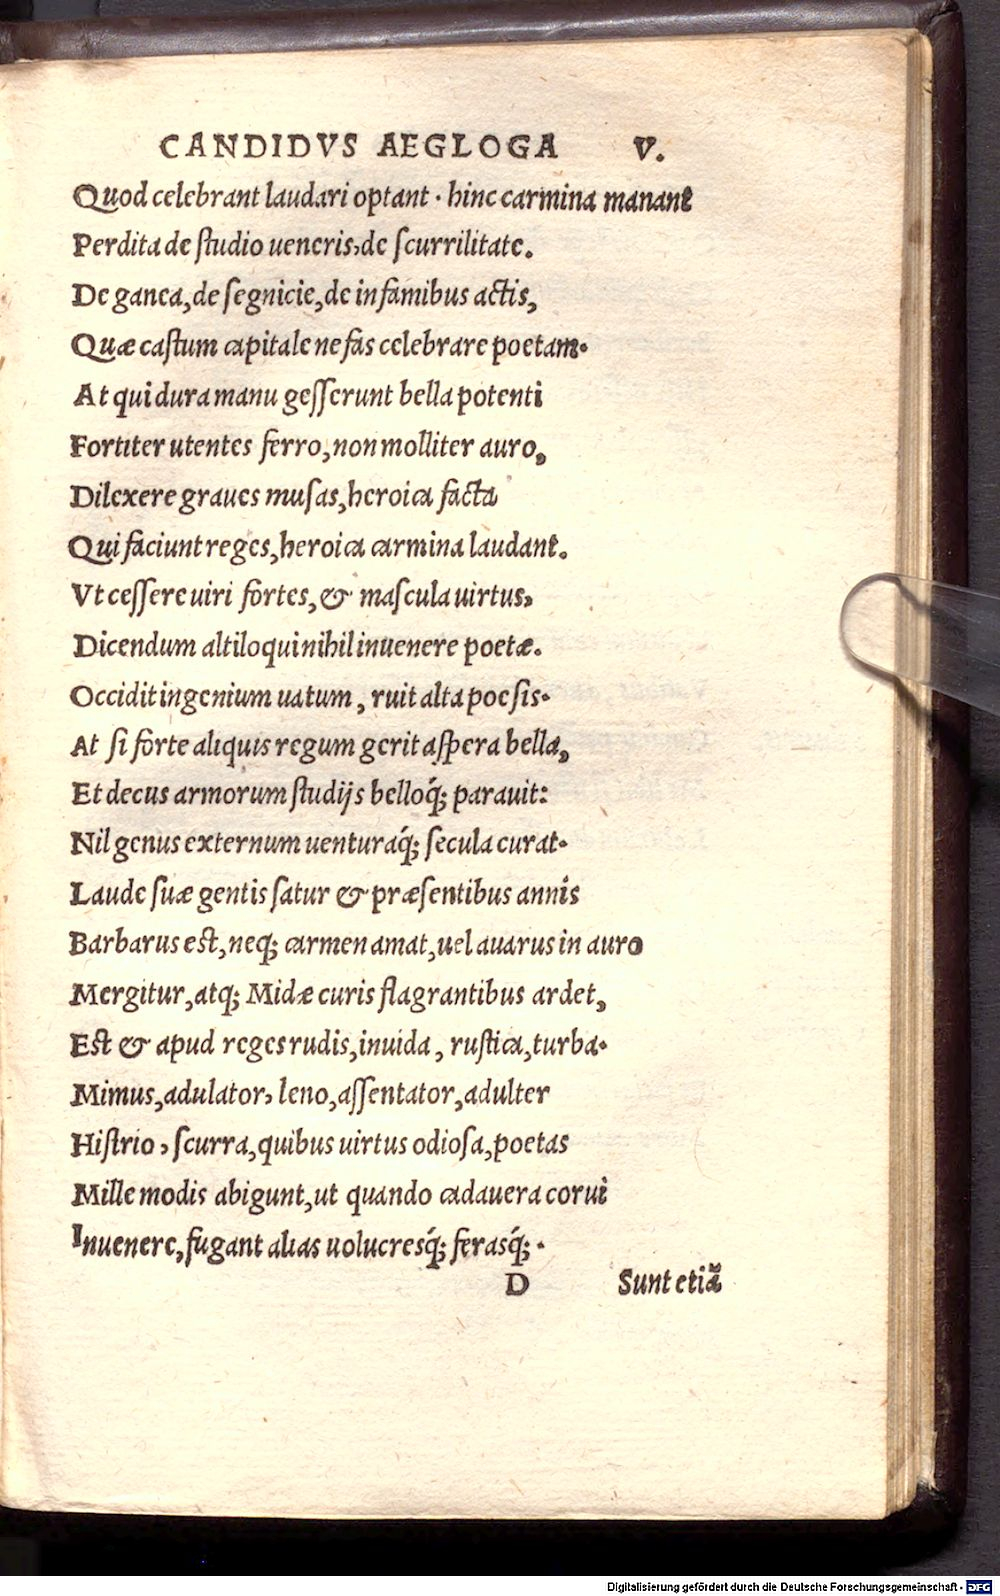 CANDIDVS AEGLOGA V.
Quod celebrant laudari optant · hinc carmina manant
Perdita de ſtudio ueneris, de ſcurrilitate.
De ganea, de ſegnicie, de infamibus actis,
Quæ caſtum capitale nefas celebrare poetam·
At qui dura manu geſſerunt bella potenti
Fortiter utentes ferro, non molliter auro,
Dilexere graues muſas, heroica facta
Qui faciunt reges, heroica carmina laudant.
Vt ceſſere uiri fortes, & maſcula uirtus,
Dicendum altiloqui nihil inuenere poetæ.
Occidit ingenium uatum, ruit alta poeſis·
At ſi forte aliquis regum gerit aſpera bella,
Et decus armorum ſtudijs belloq́; parauit:
Nil genus externum uenturaq́; ſecula curat·
Laude ſuæ gentis ſatur & præſentibus annis
Barbarus eſt, neq; carmen amat, uel auarus in auro
Mergitur, atq; Midæ curis flagrantibus ardet,
Eſt & apud reges rudis, inuida, ruſtica, turba·
Mimus, adulator, leno, aſſentator, adulter
Hiſtrio, ſcurra, quibus uirtus odioſa, poetas
Mille modis abigunt, ut quando cadauera corui
Inuenere, fugant alias uolucresq́; ferasq́; ·
D Sunt etiã
Digitalisierung gefördert durch die Deutsche Forschungsgemeinschaft - DFG